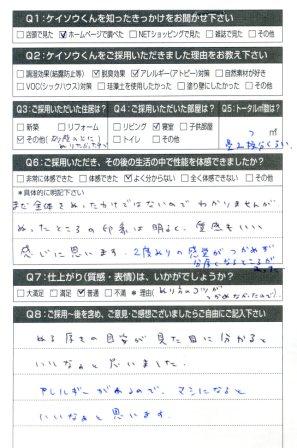 Q1：ケイソウくんを知ったきっかけをお聞かせ下さい
□店頭で見た ☑ホームページで調べた □NETショッピングで見た □雑誌で見た □その他
Q2：ケイソウくんをご採用いただきました理由をお教え下さい
□調湿効果(結露防止等) ☑脱臭効果 ☑アレルギー(アトピー)対策 □自然素材が好き
□VOC(シックハウス)対策 □珪藻土を使用したかった □塗り壁にしたかった □その他
Q3：ご採用いただいた住居は？ Q4：ご採用いただいた部屋は？ Q5：トータル㎡数は？
□新築 □リフォーム □リビング ☑寝室 □子供部屋 ㎡
☑その他( □トイレ □その他
Q6：ご採用いただき、その後の生活の中で性能を体感できましたか？
□非常に体感できた □体感できた ☑よく分からない □全く体感できない □その他
*具体的に明記下さい
まだ全体をぬったわけではないのでわかりませんが、
ぬったところの印象は明るく、質感もいい
感じに思います。2度ぬりの感覚がつかめず
分厚くなるところが
Q7：仕上がり(質感・表情)は、いかがでしょうか？
□大満足 □満足 ☑普通 □不満 *理由(ぬり方のコツが
つかめなかったので)
Q8：ご採用～後を含め、ご意見・ご感想ございましたらご自由にご記入下さい
ぬる厚さの目安が見た目に分かると
いいなぁと思いました。
アレルギーがあるので、マシになると
いいなぁと思います。